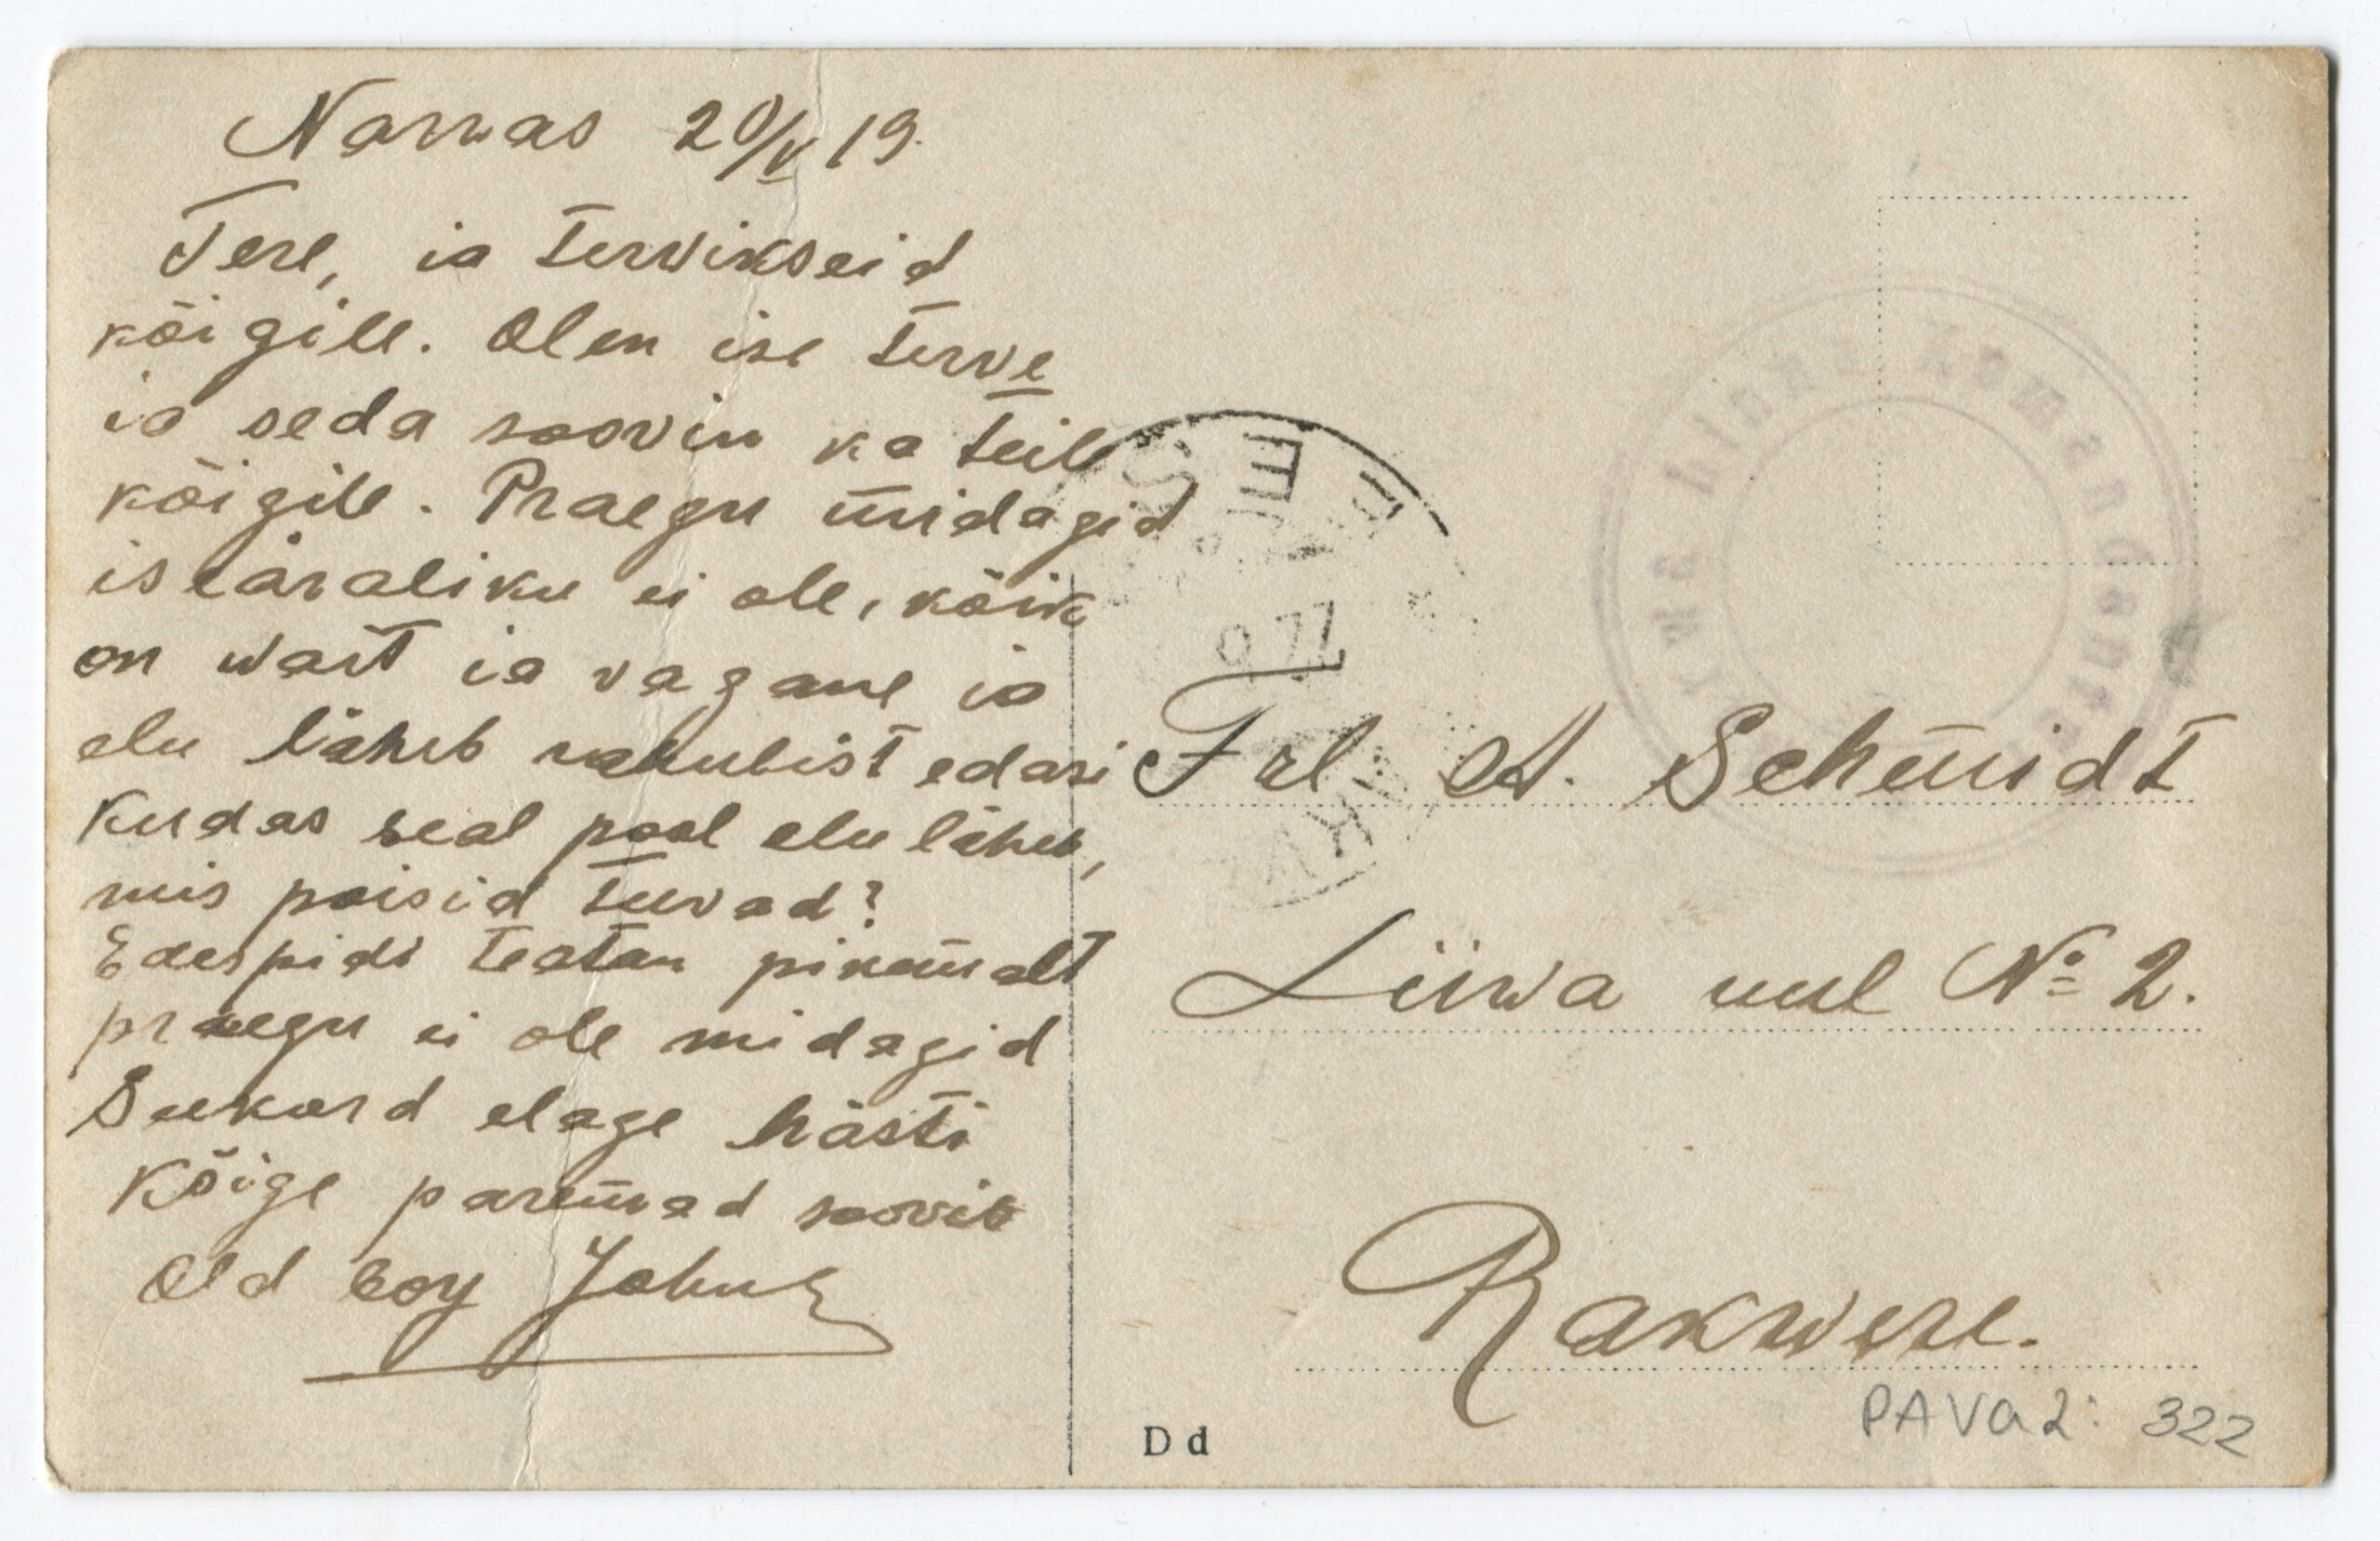 Narwas 20/V 19.
Tere, ja terwikseid
kõigile. Olen ise terve
ja seda soovin ka teile
kõigile. Praegu midagid
iseäraliku ei ole, kõik
on wait ja vagane ja
elu läheb rahulist edasi
Kudas seal pool elu läheb,
mis poisid teevad?
Edespidi teatan pikemalt
praegu ei ole midagid
Seekord elage hästi
Kõige paremad soovib
Old boy John
Frl A. Schmidt
Liiwa uul No 2.
Rakwere.
Dd
PAVa2: 322
EES
Linna Komandant